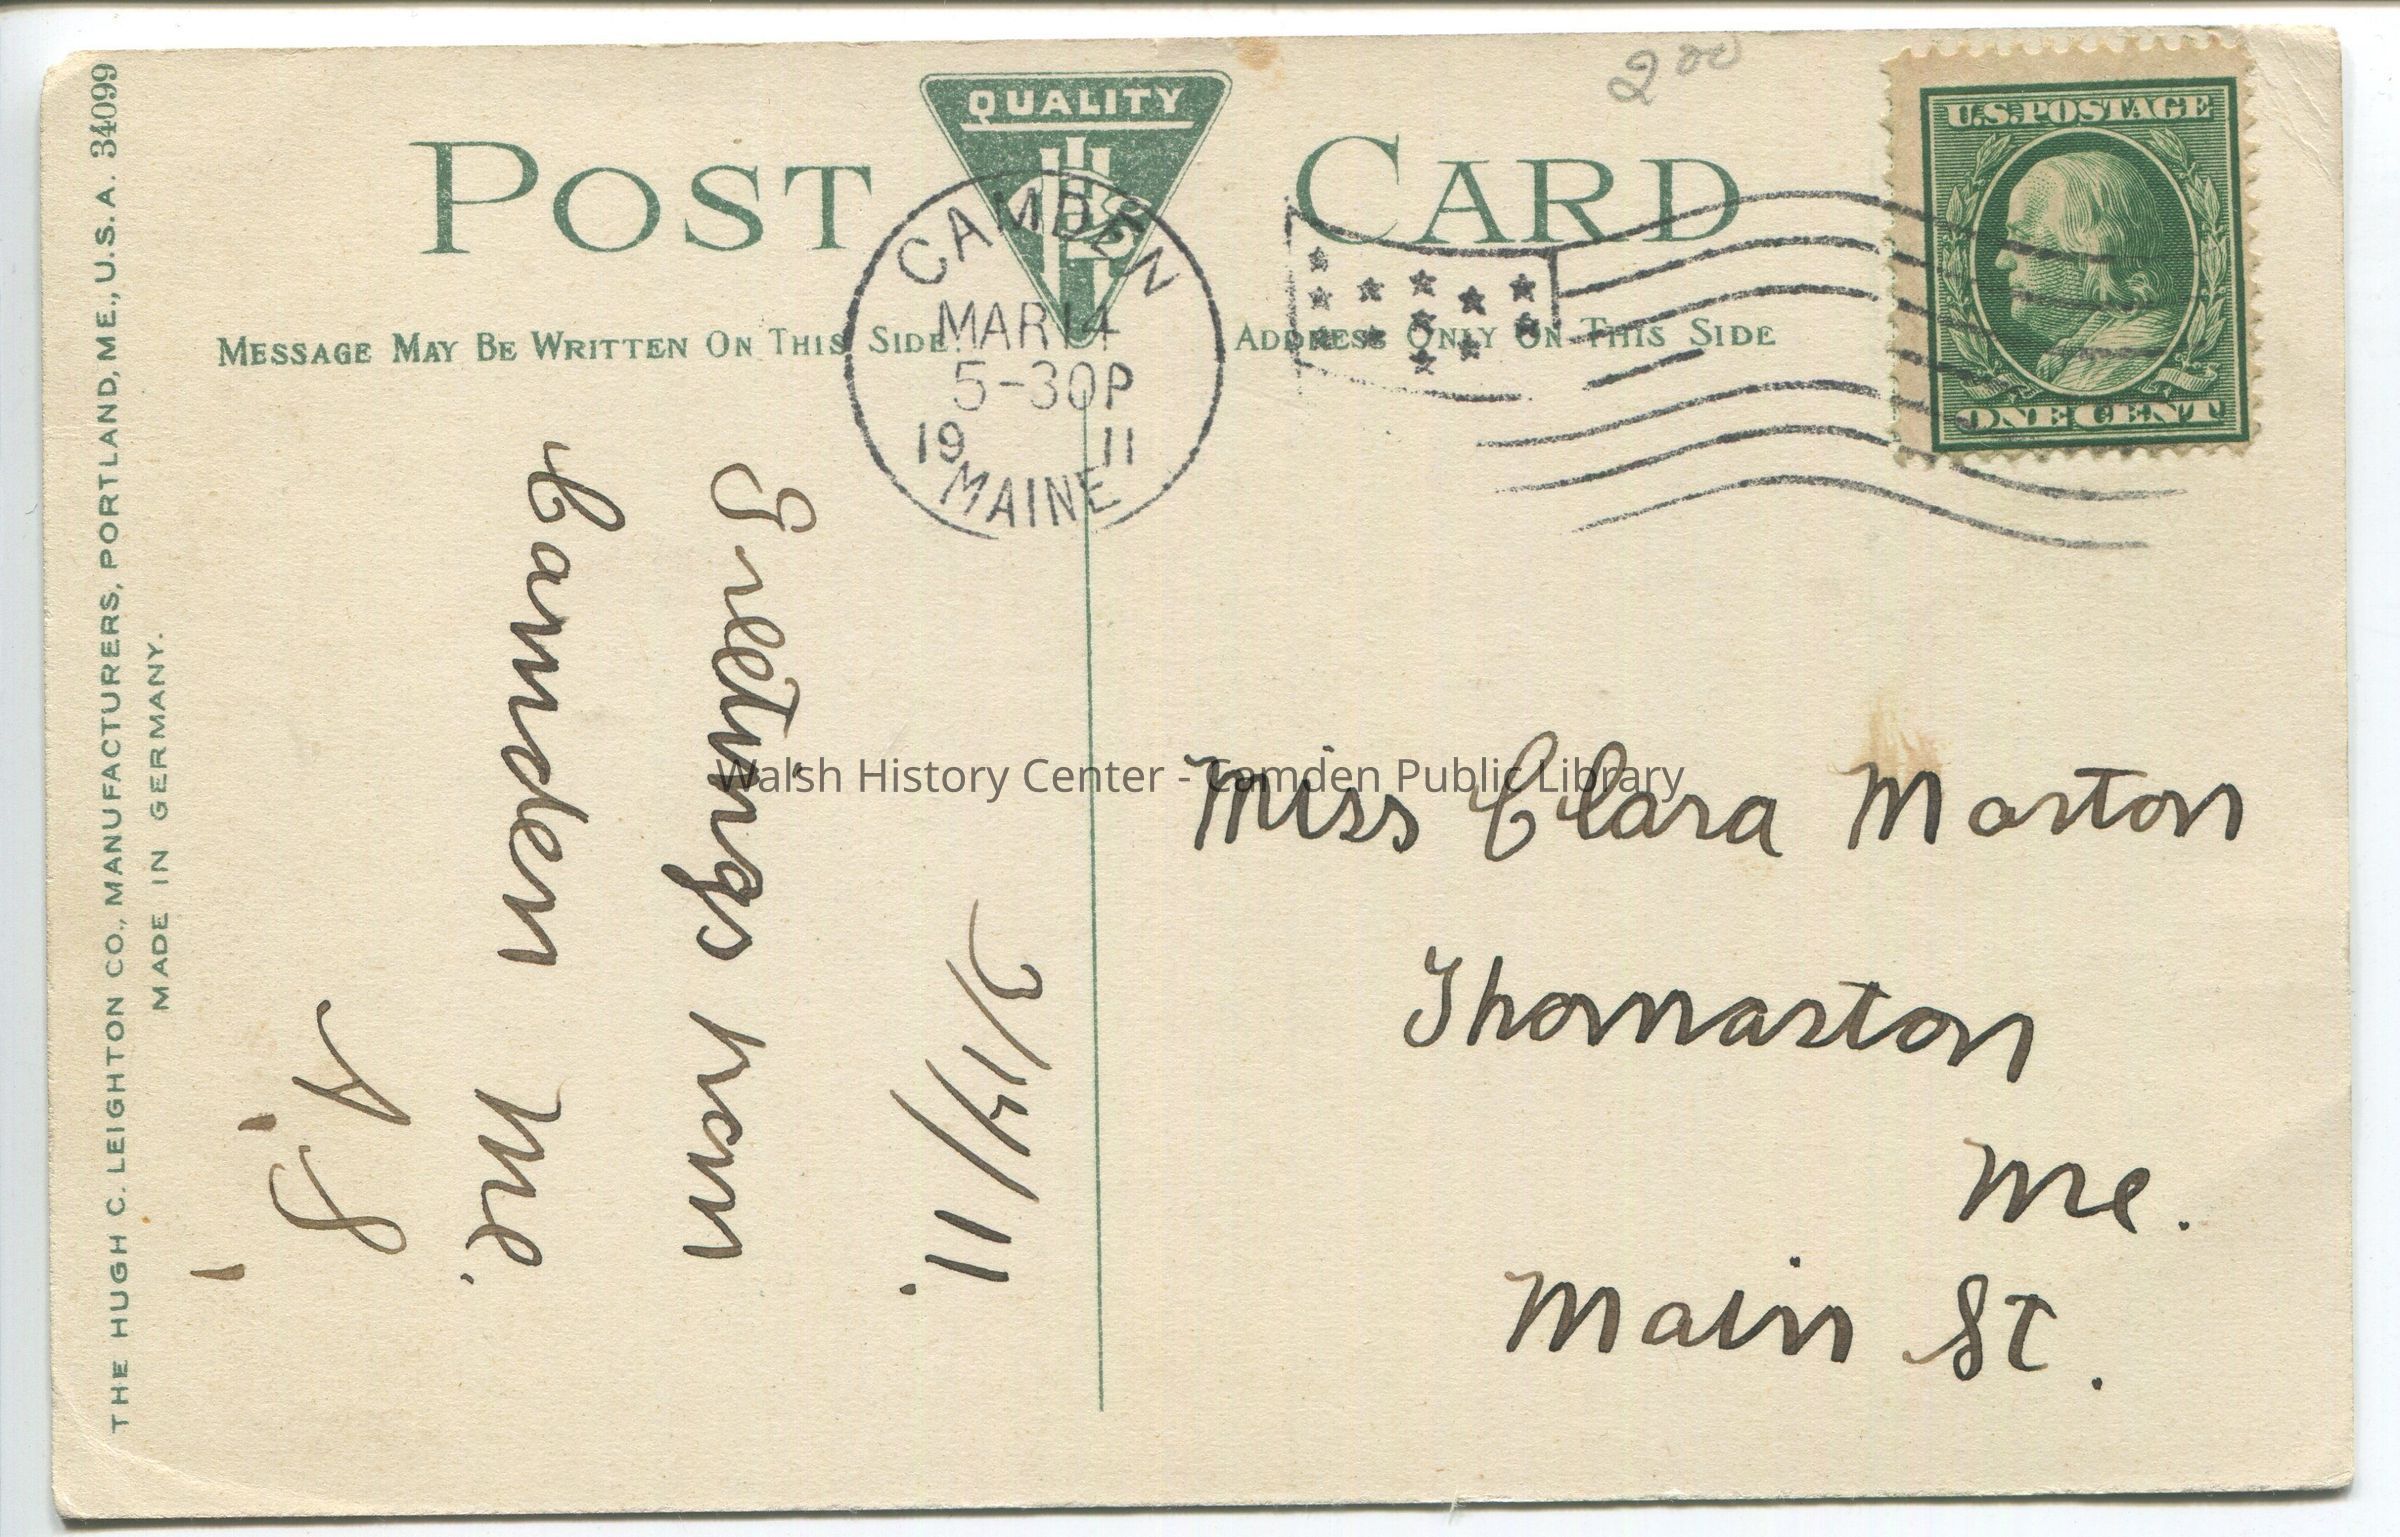 QUALITY
2 00
POST CARD
U.S. POSTAGE
ONE CENT
MESSAGE MAY BE WRITTEN ON THIS SIDE.
ADDRESS ONLY ON THIS SIDE
CAMDEN
MAR 14
5-30P
19 11
MAINE
3/14/11.
Greetings from
Camden Me.
A. S.
Miss Clara Marton
Thomaston
Me.
Main St.
THE HUGH C. LEIGHTON CO., MANUFACTURERS, PORTLAND, ME., U.S.A. 34099
MADE IN GERMANY.
Walsh History Center - Camden Public Library